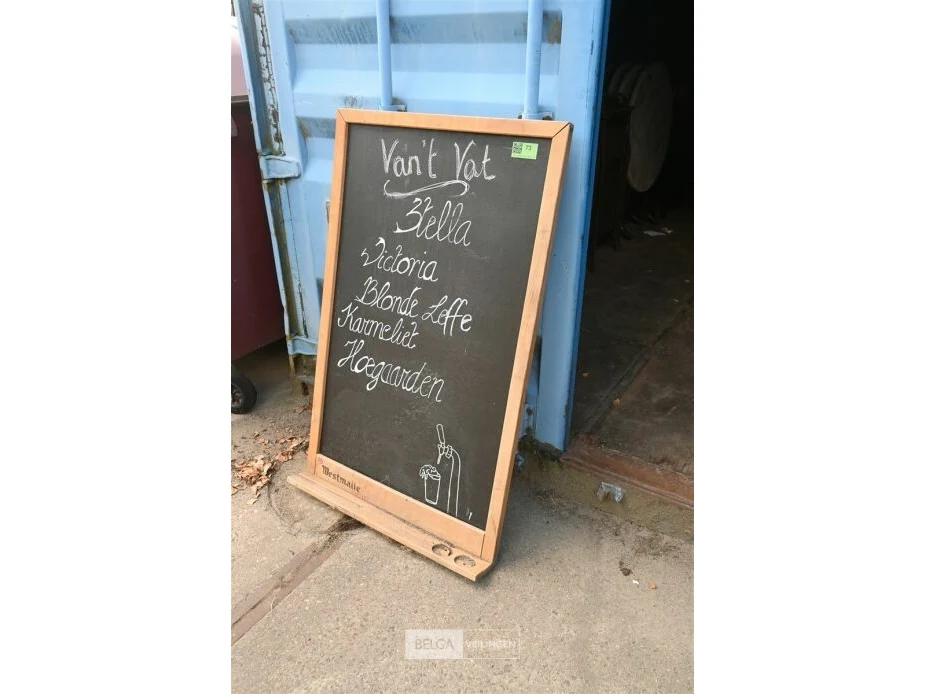 Van't Vat
73
Stella
Victoria
Blonde Leffe
Karmeliet
Hoegaarden
Westmalle
BELGA VEILINGEN